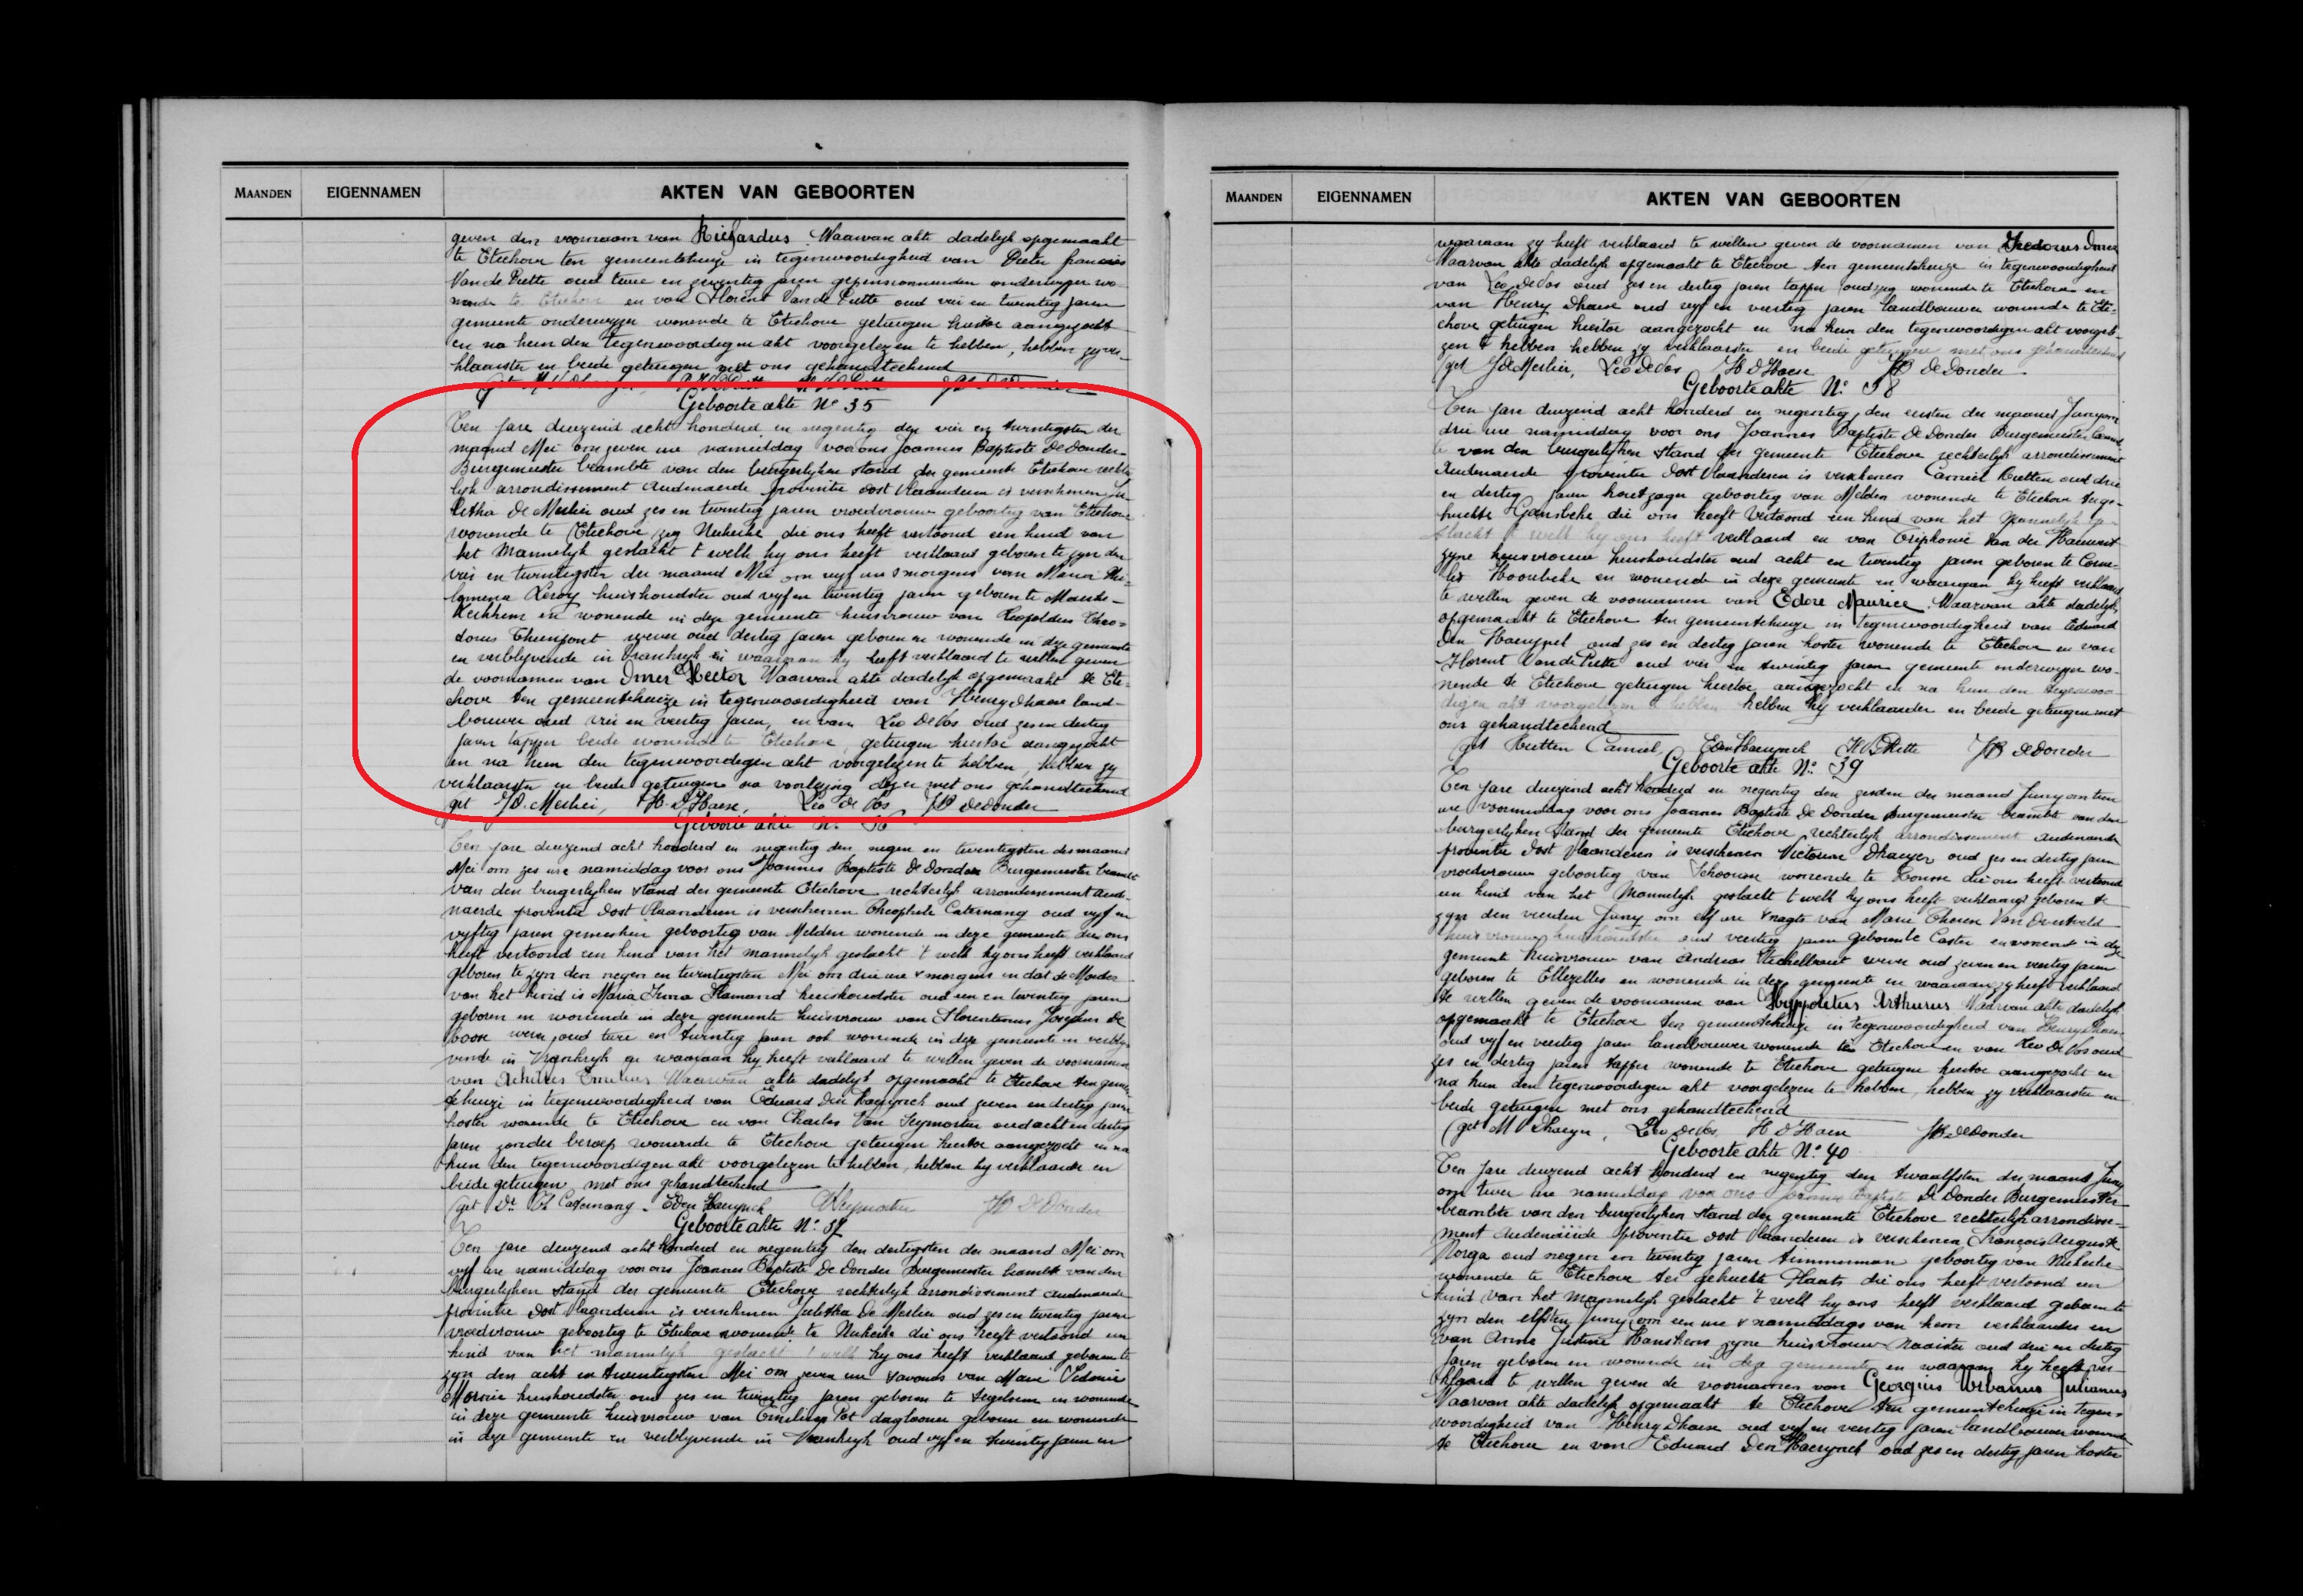 MAANDEN EIGENNAMEN AKTEN VAN GEBOORTEN
geven den voornaam van Richardus. Waarvan akte dadelyk opgemaakt
te Etichove ten gemeentehuize in tegenwoordigheid van Pieter francies
Van de Putte oud twee en zeventig jaren gepensionneerden onderwyzer wo-
nende te Etichove en van Florent Van de Putte oud vier en twintig jaren
gemeente onderwyzer wonende te Etichove getuigen hiertoe aangezocht
en na hun den tegenwoordigen akt voorgelezen te hebben, hebben zy ver-
klaarster en beide getuigen met ons gehandteekend
Geboorte akte No 35
Ten jare duizend acht honderd en negentig den vier en twintigsten der
maand Mei om zeven ure namiddag voor ons Joannes Baptiste De Donder
Burgemeester beambte van den burgerlyken stand der gemeente Etichove rechter
lyk arrondissement Audenaerde provintie Oost Vlaanderen is verschenen Ju-
litha De Merlier oud zes en twintig jaren vroedvrouw geboortig van Etichove
wonende te Etichove zeg Nukerke die ons heeft vertoond een kind van
het Mannelyk geslacht 't welk hy ons heeft verklaard geboren te zyn den
vier en twintigsten der maand Mei om vyf ure smorgens van Maria Phi-
lomena Leroy huishoudster oud vyf en twintig jaren geboren te Maerke-
Kerkhem en wonende in deze gemeente huisvrouw van Leopoldus Theo-
dorus wever oud dertig jaren geboren en wonende in deze gemeente
en verblyvende in Frankryk en waaraan hy heeft verklaard te willen geven
de voornamen van Omer Hector Waarvan akte dadelyk opgemaakt te Eti-
chove ten gemeentehuize in tegenwoordigheid van Henry Dhaese land-
bouwer oud vier en veertig jaren, en van Leo De Vos oud zes en dertig
jaren tapper beide wonende te Etichove, getuigen hiertoe aangezocht
en na hun den tegenwoordigen akt voorgelezen te hebben, hebben zy
verklaarster en beide getuigen na voorlezing dezer met ons gehandteekend
get J D. Merlier, H. D'Haese, Leo De Vos JB DeDonder
Geboorte akte No 36
Ten jare duizend acht honderd en negentig den negen en twintigsten der maand
Mei om zes ure namiddag voor ons Joannes Baptiste De Donder Burgemeester beambte
van den burgerlyken stand der gemeente Etichove rechterlyk arrondissement Aude-
naerde provintie Oost Vlaanderen is verschenen Theophile Caternang oud vyf en
vyftig jaren geneesheer geboortig van Melden wonende in deze gemeente die ons
heeft vertoond een kind van het mannelyk geslacht 't welk hy ons heeft verklaard
geboren te zyn den negen en twintigsten Mei om drie ure smorgens en dat de Moeder
van het kind is Maria Irma Flamand huishoudster oud een en twintig jaren
geboren en wonende in deze gemeente huisvrouw van Florentinus Josephus De
wever oud twee en twintig jaren ook wonende in deze gemeente en verbly-
vende in Frankryk en waaraan hy heeft verklaard te willen geven de voornamen
van Achilles Emilius Waarvan akte dadelyk opgemaakt te Etichove ten gemeen-
tehuize in tegenwoordigheid van Eduard Den Haerynck oud zeven en dertig jaren
koster wonende te Etichove en van Charles Van Seymortier oud acht en dertig
jaren zonder beroep wonende te Etichove getuigen hiertoe aangezocht en na
hun den tegenwoordigen akt voorgelezen te hebben, hebben hy verklaarder en
beide getuigen met ons gehandteekend
(get Dr Th Caternang. E Den Haerynck JB DeDonder
Geboorte akte No. 37
Ten jare duizend acht honderd en negentig den dertigsten der maand Mei om
vyf ure namiddag voor ons Joannes Baptiste De Donder Burgemeester beambte van den
burgerlyken stand der gemeente Etichove rechterlyk arrondissement Audenaerde
provintie Oost Vlaanderen is verschenen Julitha De Merlier oud zes en twintig jaren
vroedvrouw geboortig te Etichove wonende te Nukerke die ons heeft vertoond een
kind van het mannelyk geslacht 't welk hy ons heeft verklaard geboren te
zyn den acht en twintigsten Mei om zeven ure savonds van Marie Sidonie
huishoudster oud zes en twintig jaren geboren te Segelsem en wonende
in deze gemeente huisvrouw van Emilius Pot daglooner geboren en wonende
in deze gemeente en verblyvende in Frankryk oud vyf en twintig jaren en
MAANDEN EIGENNAMEN AKTEN VAN GEBOORTEN
waaraan zy heeft verklaard te willen geven de voornamen van Theodorus Omer
Waarvan akte dadelyk opgemaakt te Etichove ten gemeentehuize in tegenwoordigheid
van Leo De Vos oud zes en dertig jaren tapper wonende te Etichove en
van Henry Dhaese oud vyf en veertig jaren landbouwer wonende te Eti-
chove getuigen hiertoe aangezocht en na hun den tegenwoordigen akt voorgele-
zen te hebben hebben zy verklaarster en beide getuigen met ons gehandteekend
(get J DeMerlier, Leo DeVos H D'Haese JB DeDonder
Geboorte akte No. 38
Ten jare duizend acht honderd en negentig, den eersten der maand Juny om
drie ure namiddag voor ons Joannes Baptiste De Donder Burgemeester beamb-
te van den burgerlyken stand der gemeente Etichove rechterlyk arrondissement
Audenaerde provintie Oost Vlaanderen is verschenen Camiel Hutten oud drie
en dertig jaren houtzager geboortig van Melden wonende te Etichove ten ge-
huchte Gansbeke die ons heeft vertoond een kind van het Mannelyk ge-
slacht 't welk hy ons heeft verklaard en van Triphonie Van der Haeuwert
zyne huisvrouw huishoudster oud acht en twintig jaren geboren te Corne-
lis Hoorebeke en wonende in deze gemeente en waaraan hy heeft verklaard
te willen geven de voornamen van Edore Maurice. Waarvan akte dadelyk
opgemaakt te Etichove ten gemeentehuize in tegenwoordigheid van Eduard
Den Haerynck oud zes en dertig jaren koster wonende te Etichove en van
Florent Van de Putte oud vier en twintig jaren gemeente onderwyzer wo-
nende te Etichove getuigen hiertoe aangezocht en na hun den tegenwoor-
digen akt voorgelezen te hebben hebben hy verklaarder en beide getuigen met
ons gehandteekend
get Hutten Camiel, E Den Haerynck JB DeDonder
Geboorte akte No: 39
Ten jare duizend acht honderd en negentig den zesden der maand Juny om tien
ure voormiddag voor ons Joannes Baptiste De Donder Burgemeester beambte van den
burgerlyken stand der gemeente Etichove rechterlyk arrondissement Audenaerde
provintie Oost Vlaanderen is verschenen Victorine Dhaeyer oud zes en dertig jaren
vroedvrouw geboortig van Schoorisse wonende te Ronsse die ons heeft vertoond
een kind van het Mannelyk geslacht 't welk hy ons heeft verklaard geboren te
zyn den vierden Juny om elf ure snagts van Marie Therese
huisvrouw huishoudster oud veertig jaren geboren te Caster en wonende in deze
gemeente huisvrouw van Andreas Stichelbaut wever oud zeven en veertig jaren
geboren te Ellezelles en wonende in deze gemeente en waaraan zy heeft verklaard
te willen geven de voornamen van Hyppolitus Arthurus Waarvan akte dadelyk
opgemaakt te Etichove ten gemeentehuize in tegenwoordigheid van Henry Dhaese
oud vyf en veertig jaren landbouwer wonende te Etichove en van Leo De Vos oud
zes en dertig jaren tapper wonende te Etichove getuigen hiertoe aangezocht en
na hun den tegenwoordigen akt voorgelezen te hebben, hebben zy verklaarster en
beide getuigen met ons gehandteekend
(get M Dhaeyer, Leo DeVos, H D'Haese JB DeDonder
Geboorte akte No. 40
Ten jare duizend acht honderd en negentig den twaalfsten der maand Juny
om twee ure namiddag voor ons Joannes Baptiste De Donder Burgemeester
beambte van den burgerlyken stand der gemeente Etichove rechterlyk arrondisse-
ment Audenaerde provintie Oost Vlaanderen is verschenen François Auguste
Norga oud negen en twintig jaren timmerman geboortig van Nukerke
wonende te Etichove ten gehuchte Plaats die ons heeft vertoond een
kind van het Mannelyk geslacht 't welk hy ons heeft verklaard geboren te
zyn den elfsten Juny om een ure snamiddags van hem verklaarder en
van Anna Justine Hanskens zyne huisvrouw naaister oud drie en dertig
jaren geboren en wonende in deze gemeente en waaraan hy heeft ver-
klaard te willen geven de voornamen van Georgius Urbanus Julianus
Waarvan akte dadelyk opgemaakt te Etichove ten gemeentehuize in tegen-
woordigheid van Henry Dhaese oud vyf en veertig jaren landbouwer wonende
te Etichove en van Eduard Den Haerynck oud zes en dertig jaren koster